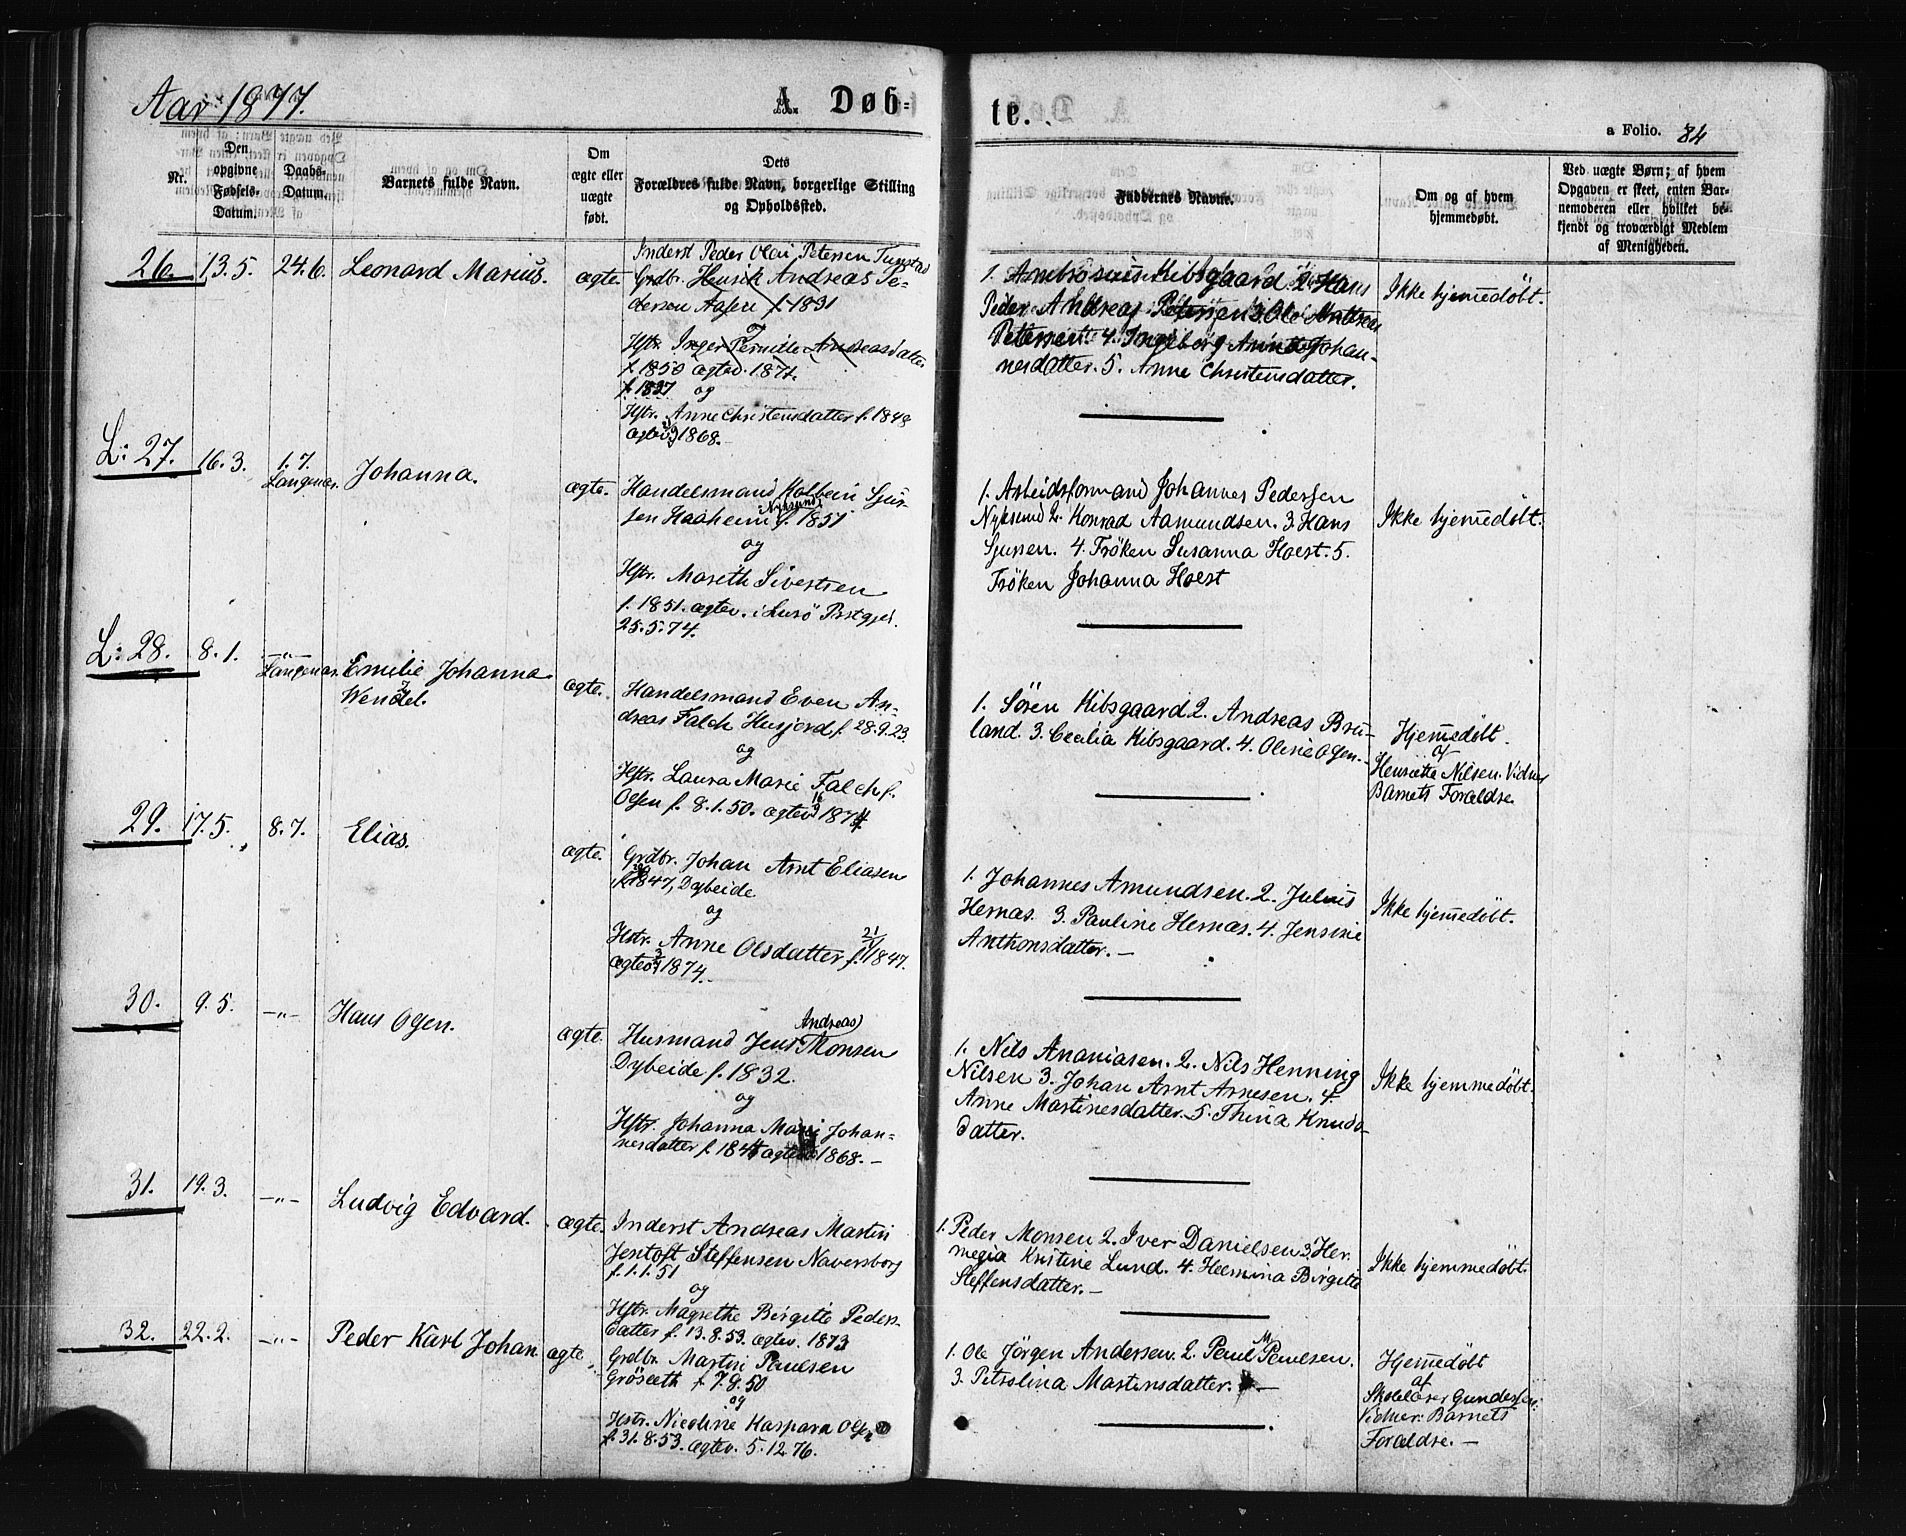 Aar 1877.
A. Døb-
te.
a Folio. 84
Nr.
Den opgivne Fødsels-Datum.
Daabs-Datum.
Barnets fulde Navn.
Om ægte eller uægte født.
Dets Forældres fulde Navn, borgerlige Stilling og Opholdssted.
Faddernes Navne.
Om og af hvem hjemmedøbt.
Ved uægte Børn; af hvem Opgaven er skeet, enten Barnemoderen eller hvilket bekjendt og troværdigt Medlem af Menigheden.
26. 13.5. 24.6. Leonard Marius. ægte.
Inderst Peder Olai Petersen Tunstad
Grdbr. Henrik Andreas Pe-
dersen Aasen f. 1831
Hstr. Inger Pernille Andreasdatter
f. 1850 ægtev. 1871.
f. 1837 og
Hstr. Anne Christensdatter f. 1848
ægtev. 1868.
1. Ambrosius Kibsgaard 2. Hans
Peder Andreas Petersen 3. Ole Andreas
Petersen 4. Ingeborg Anna Johan-
nesdatter. 5. Anne Christensdatter.
Ikke hjemedøbt.
L: 27. 16.3. 1.7. Langenæs. Johanna. ægte.
Handelsmand Kolbein Sjur-
sen Haaheim Nyksund f. 1851
og
Hstr. Mareth Sivertsen
f. 1851. ægtev. i Lurö Prstgjd.
25.5.74.
1. Arbeidsformand Johannes Pedersen
Nyksund 2. Konrad Aamundsen. 3. Hans
Sjursen. 4. Fröken Susanna Hoest. 5.
Fröken Johanna Hoest
Ikke hjemedøbt.
L: 28. 8.1. -"- Langenæs. Emilie Johanna
Wendel. ægte.
Handelsmand Even An-
dreas Falch Husjord f. 28.9.23.
og
Hstr. Laura Marie Falch f.
Olsen f. 8.1.50. ægtev. 16/9 1874
1. Sören Kibsgaard 2. Andreas Bru-
land. 3. Cecilia Kibsgaard. 4. Oline Olsen.
Hjemedøbt.
af
Henriette Nilsen. Vidner
Barnets Forældre.
29. 17.5. 8.7. Elias. ægte.
Grdbr. Johan Arnt Eliasen
f. 1847, Dybeide
og
Hstr. Anne Olsdatter f. 21/1 1847.
ægtev. 1874.
1. Johannes Amundsen. 2. Julius
Hernæs. 3. Pauline Hernæs. 4. Jensine
Anthonsdatter. —
Ikke hjemedøbt.
30. 9.5. -"- Hans Olsen. ægte.
Husmand Jens Andreas Monsen
Dybeide f. 1832.
og
Hstr. Johanna Marie Johan-
nesdatter f. 1844 ægtev. 1868. —
1. Nils Ananiasen. 2. Nils Henning
Nilsen 3. Johan Arnt Arnesen. 4.
Anne Martinesdatter. 5. Thina Knuds-
datter.
Ikke hjemmedøbt.
31. 19.3. -"- Ludvig Edvard. ægte.
Inderst Andreas Martin
Jentoft Steffensen Naversborg
f. 1.1.51
og
Hstr. Magrethe Birgite Peders-
datter f. 13.8.53. ægtev. 1873
1. Peder Monsen 2. Iver Danielsen 3. Her-
megia Kristine Lund. 4. Heemina Birgite
Steffensdatter. —
Ikke hjemmedøbt.
32. 22.2. -"- Peder Karl Johan ægte.
Grdbr. Martin Paulsen
Gröseth f. 7.9.50
og
Hstr. Nicoline Kaspara Olsen
f. 31.8.53. ægtev. 5.12.76.
1. Ole Jörgen Andersen. 2. Paul M. Paulsen.
3. Petrolina Martensdatter. —
Hjemedøbt
af
Skolelærer Gundersen.
Vidner: Barnets
Forældre. —